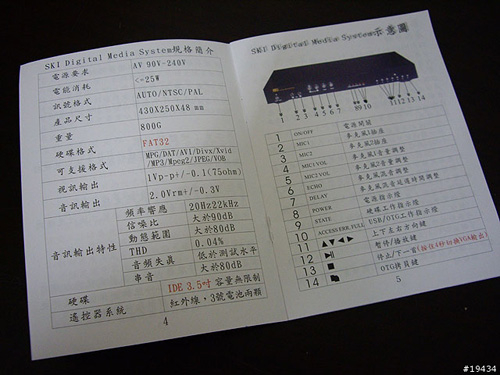 SKI Digital Media System規格簡介
電源要求 AV 90V-240V
電能消耗 <=25W
訊號格式 AUTO/NTSC/PAL
產品尺寸 430X250X48 mm
重量 800G
硬碟格式 FAT32
可支援格式 MPG/DAT/AVI/Divx/Xvid
/MP3/Mpeg2/JPEG/VOB
視訊輸出 1Vp-p+/-0.1(75ohm)
音訊輸出 2.0Vrm+/-0.3V
音訊輸出特性
頻率響應 20Hz22kHz
信噪比 大於90dB
動態範圍 大於80dB
THD 0.04%
音頻失真 低於測試水平
串音 大於80dB
硬碟 IDE 3.5吋 容量無限制
遙控器系統 紅外線，3號電池兩顆
4
SKI Digital Media System示意圖
1 2 3 4 5 6 7 8 9 10 11 12 13 14
1 ON/OFF 電源開關
2 MIC1 麥克風1插座
3 MIC2 麥克風2插座
4 MIC1 VOL 麥克風1音量調整
5 MIC2 VOL 麥克風2音量調整
6 ECHO 麥克風混音調整
7 DELAY 麥克風混音延遲時間調整
8 POWER 電源指示燈
9 STATE 硬碟工作指示燈
10 ACCESS/ERR.FULL USB/OTG工作指示燈
11 ▲▼◄► 上下左右方向鍵
12 ►|| 暫停/播放鍵
13 ■ 停止/下一首(按住4秒切換VGA輸出)
14 OTG拷貝鍵
5
#19434